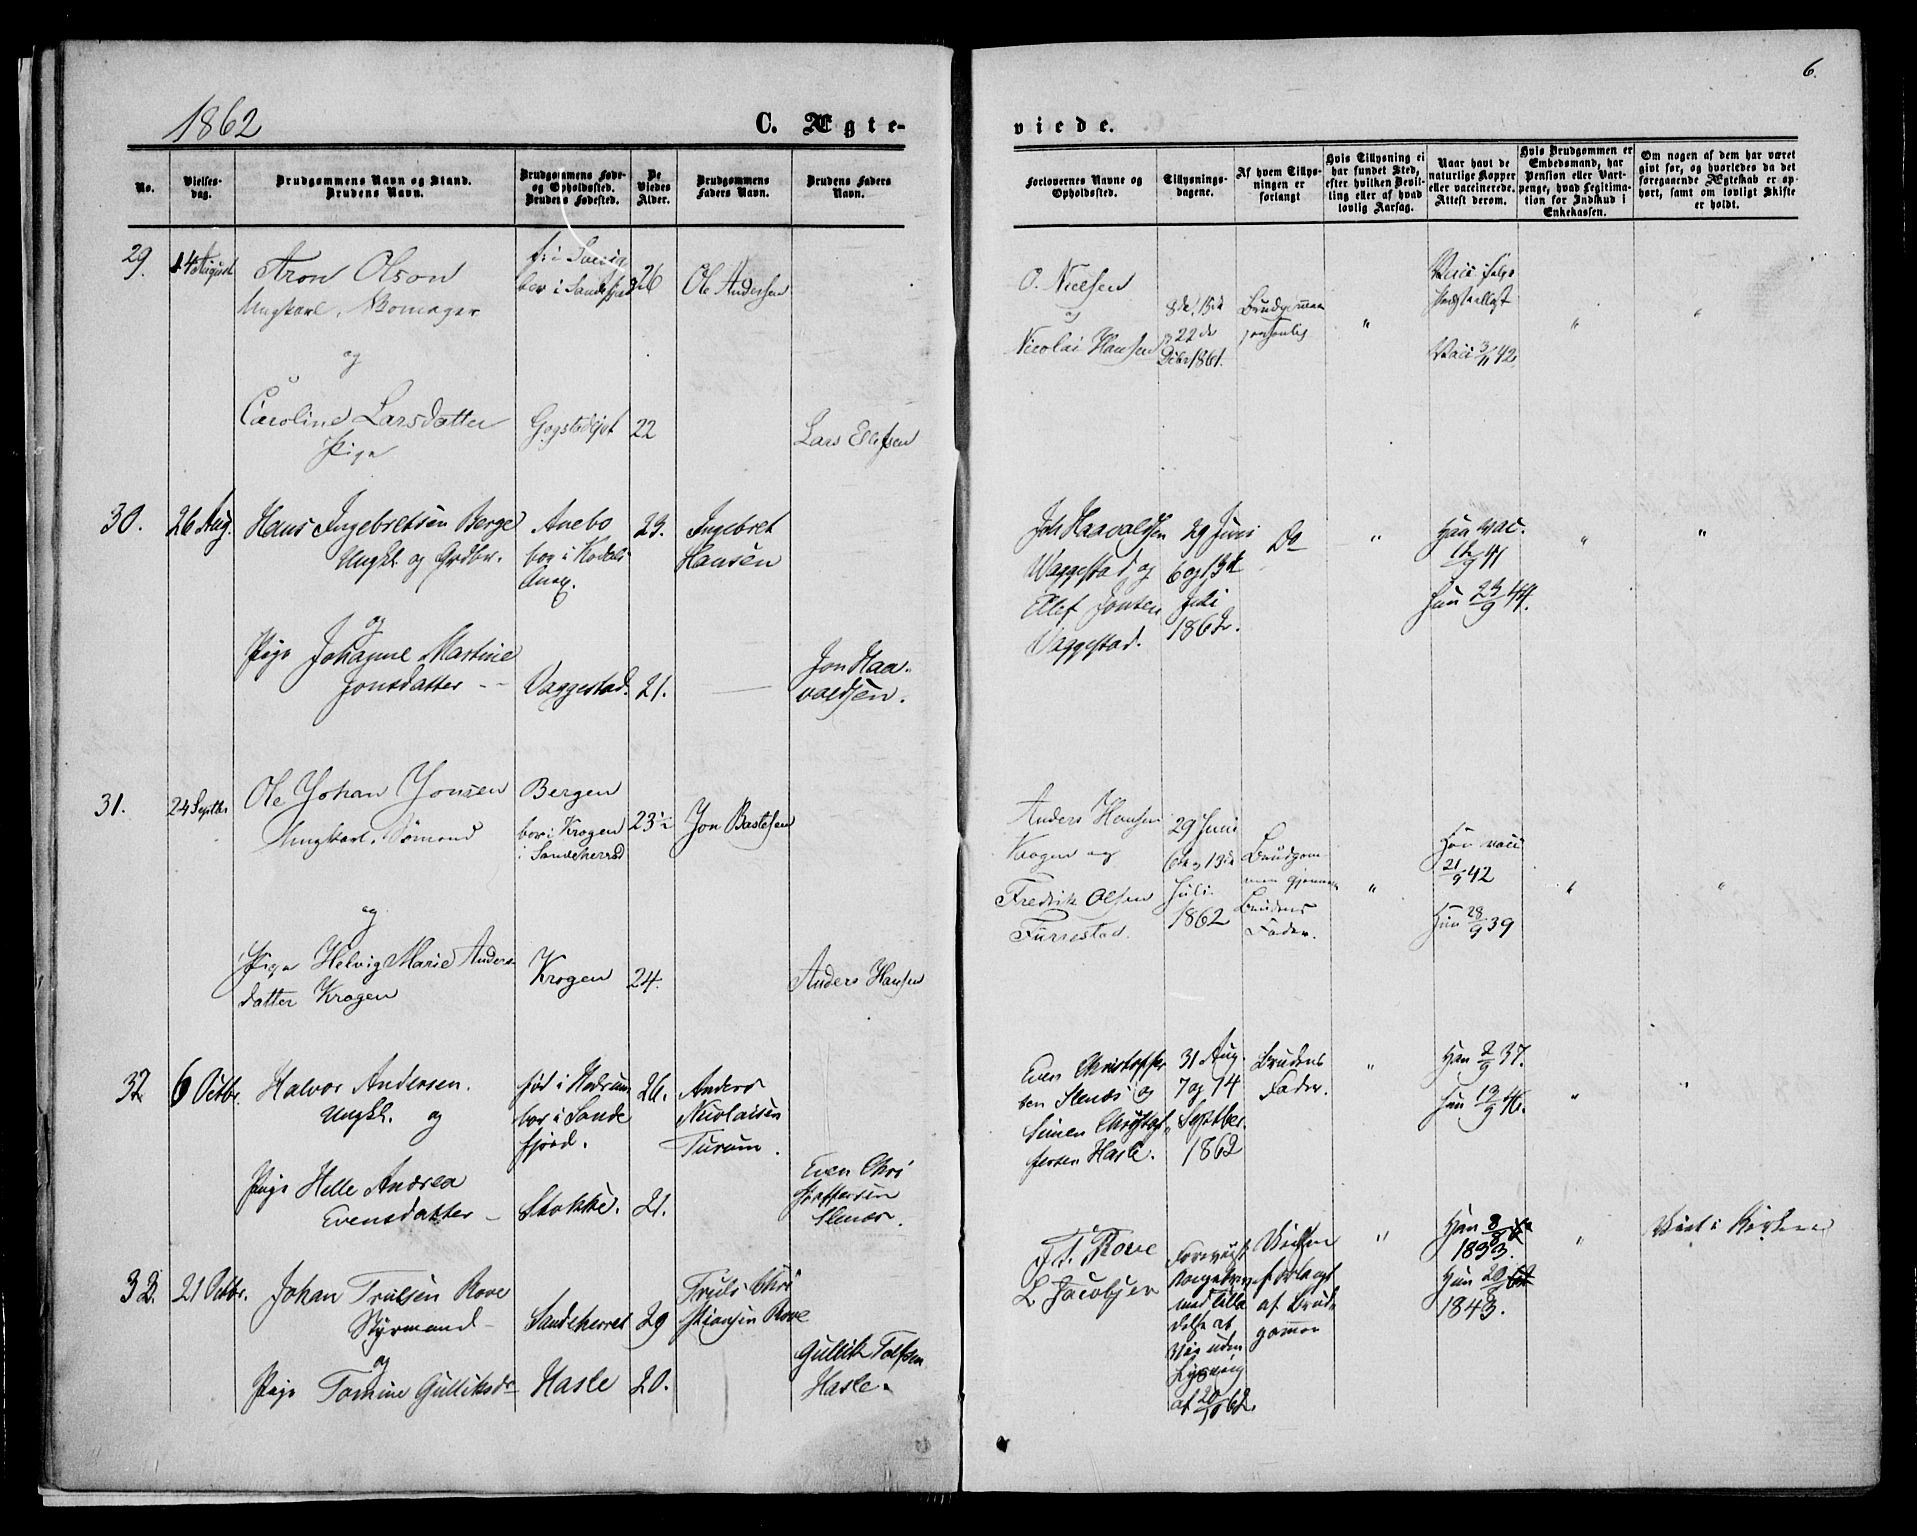 6.
1862
C. Ægte-
viede.
No.
Vielses-
dag.
Brudgommens Navn og Stand.
Brudens Navn.
Brudgommens Føde-
og Opholdssted.
Brudens Fødested.
De
Viedes
Alder.
Brudgommens
Faders Navn.
Brudens Faders
Navn.
Forlovernes Navne og
Opholdssted.
Tillysnings-
dagene.
Af hvem Tillys-
ningen er
forlangt
Hvis Tillysning ei
har fundet Sted,
efter hvilken Bevil-
ling eller af hvad
lovlig Aarsag.
Naar havt de
naturlige Kopper
eller vaccinerede.
Attest derom.
Hvis Brudgommen er
Embedsmand, har
Pension eller Vart-
penge, hvad Legitima-
tion for Indskud i
Enkekassen.
Om nogen af dem har været
givt før, og hvorledes da det
foregaaende Ægteskab er op-
hørt, samt om lovligt Skifte
er holdt.
29.
14 August
Aron Olson
Ungkarl, Skomager
og
Caroline Larsdatter
Pige
f. i
bor i Sandefjord
Gogstadejet
26
22
Ole Andersen
Lars Ellefsen
O. Nielsen
og
Nicolai Hansen
8de, 15de
22de
Dcbr 1861.
Brudgommen
personlig
"
Vacc
Vacc 3/11 42
"
"
30.
26 Aug.
Hans Ingebretsen Berge
Ungkl. og Grdbr.
og
Pige Johanne Martine
Jonsdatter -
Anebo
bor i Kodals
Anex.
Vaggestad.
23.
21.
Ingebret
Hansen
Jon Haa-
valdsen.
Jon Haavaldsen
Waggestad og
Ellef Jonsen
Vaggestad.
29 Juni
6 og 13de
Juli
1862.
Do
"
Han vac.
hun 23/9 44.
"
"
31.
24 Septbr
Ole Johan Jonsen
Ungkarl, Sømand
og
Pige Helvig Marie Anders-
datter Krogen
Bergen
bor i Krogen
i Sandeherred
Krogen
23½
24.
Jon Bastesen
Anders Hansen
Anders Hansen
Krogen og
Fredrik Olsen
Furrestad.
29 Juni
6te og 13de
Juli
1862
Brudgom
men gjennem
Brudens
Fader.
"
Han vacc
21/9 42
Hun 28/9 39
"
"
32
6 Octbr.
Halvor Andersen.
Ungkl. og
Pige Helle Andrea
Evensdatter -
fød i Hedrum
bor i Sande
fjord.
Stokke.
26.
21.
Anders
Nicolaisen
Turum.
Even Chri
stoffersen
Slenæs.
Even Christoffer
sen Slenæs og
Simen Christof
fersen Hasle.
31 Aug.
7 og 14
Septber.
1862
Brudens
Fader.
"
Han 2/9 37.
hun 19/9 46.
"
"
33.
21 Octbr.
Johan Trulsen Rove
Styrmand -
og
Pige Tomine Gulliksdr
Sandeherred
Hasle
29
20.
Truls Chri
stiansen Rove
Gullik Tolfsen
Hasle.
T. Rove
L Jacobsen
Forevist
med Tilla
delse at
vies uden
Lysning
af 20/10 62.
Vielsen
forlangt
af Brud
gommen
"
Han
1833.
Hun
1843.
"
Viet i Kirken